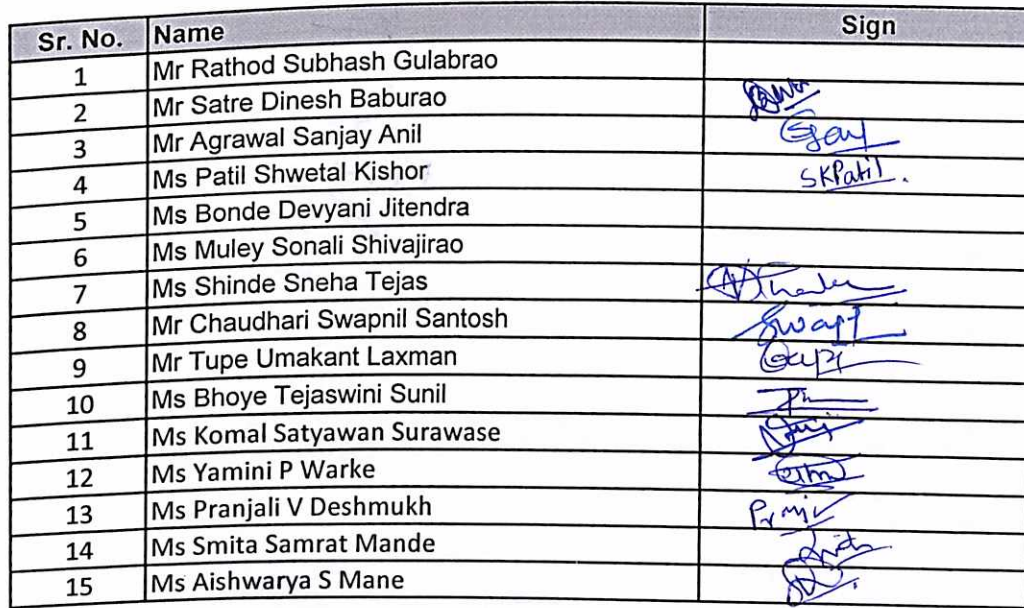 Sr. No. Name Sign
1 Mr Rathod Subhash Gulabrao
2 Mr Satre Dinesh Baburao
3 Mr Agrawal Sanjay Anil
4 Ms Patil Shwetal Kishor SKPatil.
5 Ms Bonde Devyani Jitendra
6 Ms Muley Sonali Shivajirao
7 Ms Shinde Sneha Tejas
8 Mr Chaudhari Swapnil Santosh
9 Mr Tupe Umakant Laxman
10 Ms Bhoye Tejaswini Sunil
11 Ms Komal Satyawan Surawase
12 Ms Yamini P Warke
13 Ms Pranjali V Deshmukh
14 Ms Smita Samrat Mande
15 Ms Aishwarya S Mane